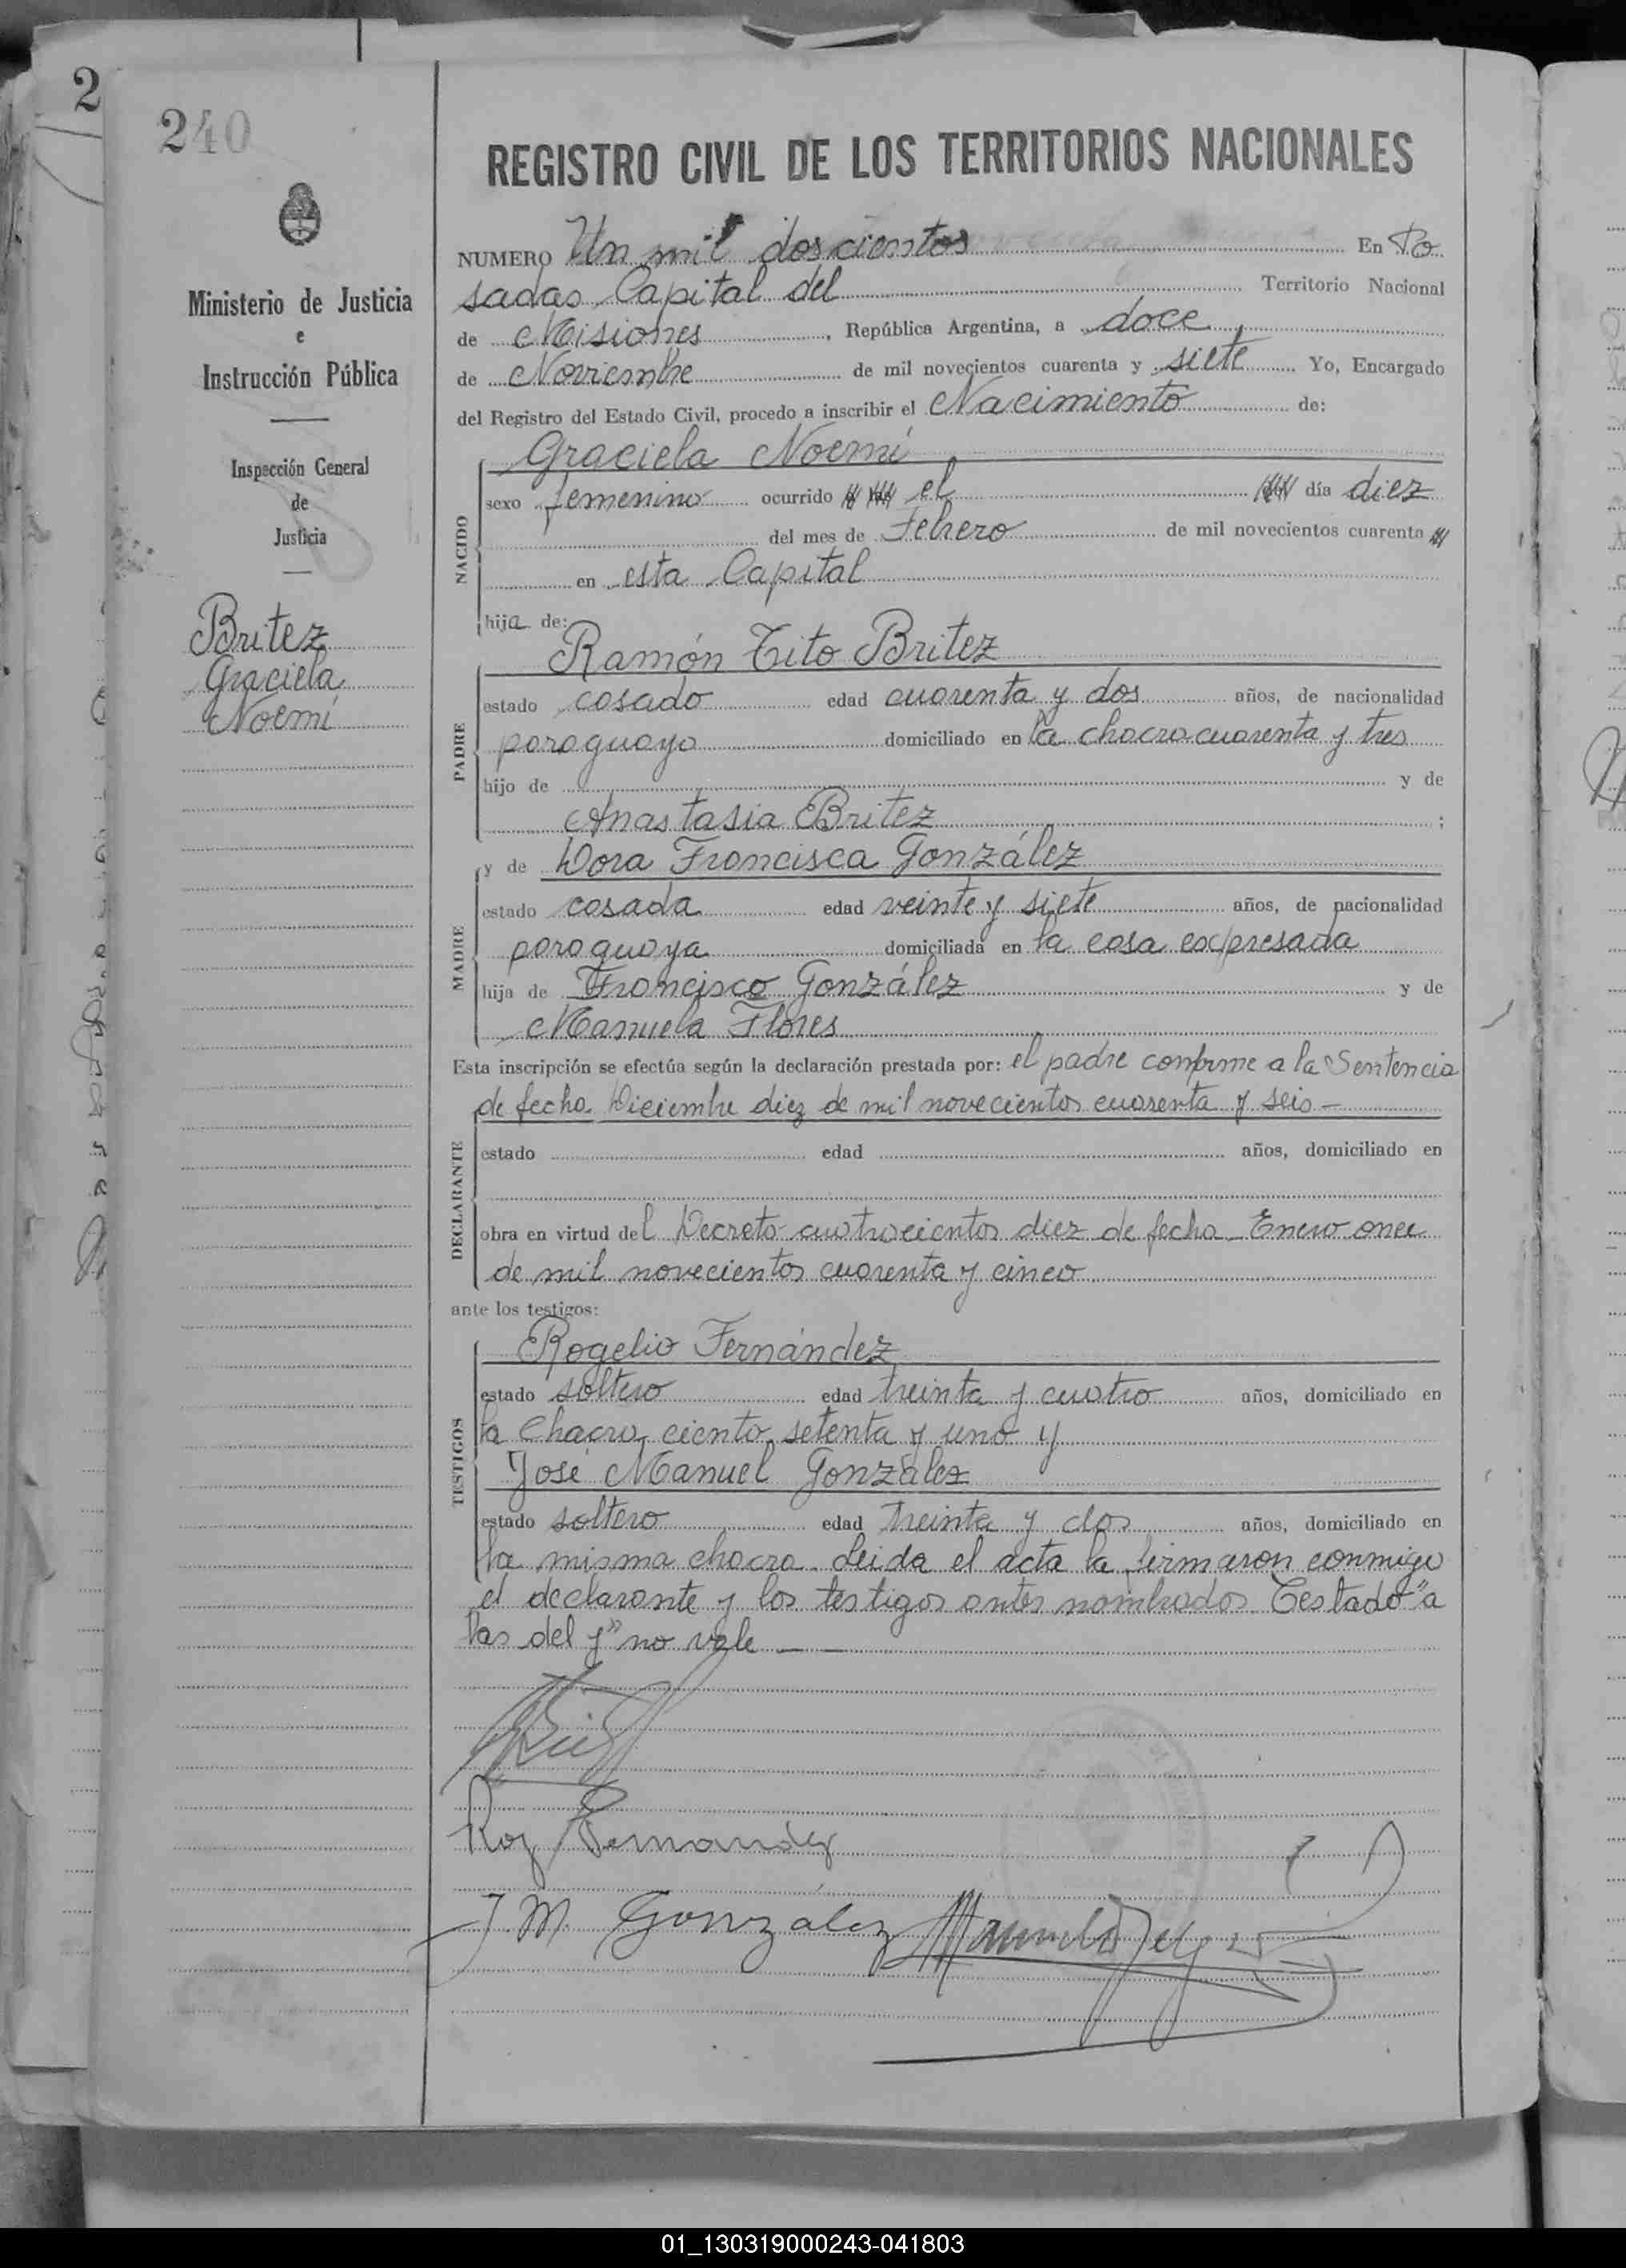 2
240
REGISTRO CIVIL DE LOS TERRITORIOS NACIONALES
Ministerio de Justicia
e
Instrucción Pública
Inspección General
de
Justicia
Britez
Graciela
Noemí
NUMERO Un mil doscientos En Po
sadas Capital del Territorio Nacional
de Misiones, República Argentina, a doce
de Noviembre de mil novecientos cuarenta y siete Yo, Encargado
del Registro del Estado Civil, procedo a inscribir el Nacimiento de:
NACIDO
Graciela Noemí
sexo femenino ocurrido el día diez
del mes de Febrero de mil novecientos cuarenta
en esta Capital
hija de:
PADRE
Ramón Tito Britez
estado casado edad cuarenta y dos años, de nacionalidad
paraguayo domiciliado en la chacra cuarenta y tres
hijo de y de
Anastasia Britez ;
MADRE
y de Dora Francisca González
estado casada edad veinte y siete años, de nacionalidad
paraguaya domiciliada en la casa expresada
hija de Francisco González y de
Manuela Flores
Esta inscripción se efectúa según la declaración prestada por: el padre conforme a la Sentencia
de fecha Diciembre diez de mil novecientos cuarenta y seis –
DECLARANTE
estado edad años, domiciliado en
obra en virtud del Decreto cuatrocientos diez de fecha Enero once
de mil novecientos cuarenta y cinco
ante los testigos:
TESTIGOS
Rogelio Fernández
estado soltero edad treinta y cuatro años, domiciliado en
la Chacra ciento setenta y uno y
Jose Manuel González
estado soltero edad treinta y dos años, domiciliado en
la misma chacra. Leida el acta la firmaron conmigo
el declarante y los testigos antes nombrados Testado "a
las del y" no vale — —
Rog Fernandez
J. M. González
01_130319000243-041803